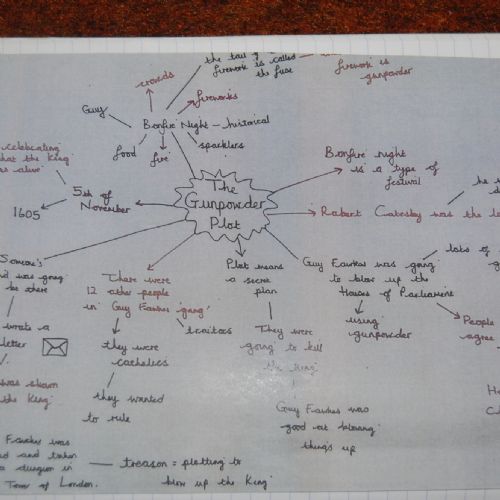 the tail of a
firework is called
the fuse
firework is
gunpowder
crowds
fireworks
Guy
Bonfire Night - historical
food
fire
sparklers
celebrating
that the King
was alive
5th of
November
1605
The
Gunpowder
Plot
Bonfire night
is a type of
festival
Robert Catesby was the
Guy Fawkes was going
to blow up the
Houses of Parliament
lots of
using
gunpowder
People
agree
Someone's
was going
be there
wrote a
letter
was shown
the King
There were
12 other people
in Guy Fawkes 'gang'
traitors
they were
catholics
they wanted
to rule
Plot means
a secret
plan
They were
going to kill
the King
Guy Fawkes was
good at blowing
things up
Fawkes was
and taken
a dungeon in
Tower of London.
treason = plotting to
blow up the King